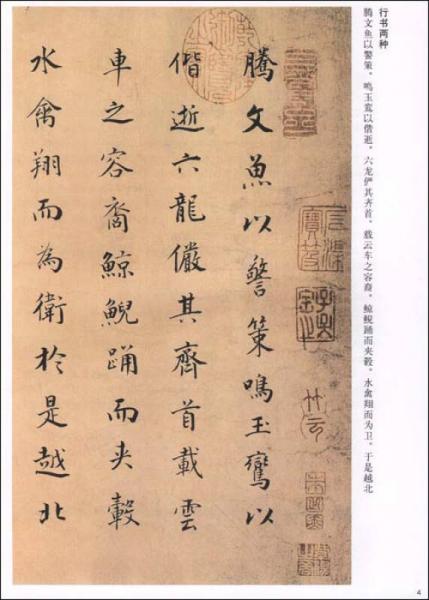 行书两种
腾文鱼以警策，鸣玉鸾以偕逝，六龙俨其齐首，载云车之容裔，鲸鲵踊而夹毂，水禽翔而为卫。于是越北
騰文魚以警策鳴玉鸞以
偕逝六龍儼其齊首載雲
車之容裔鯨鯢踊而夾轂
水禽翔而為衛於是越北
4